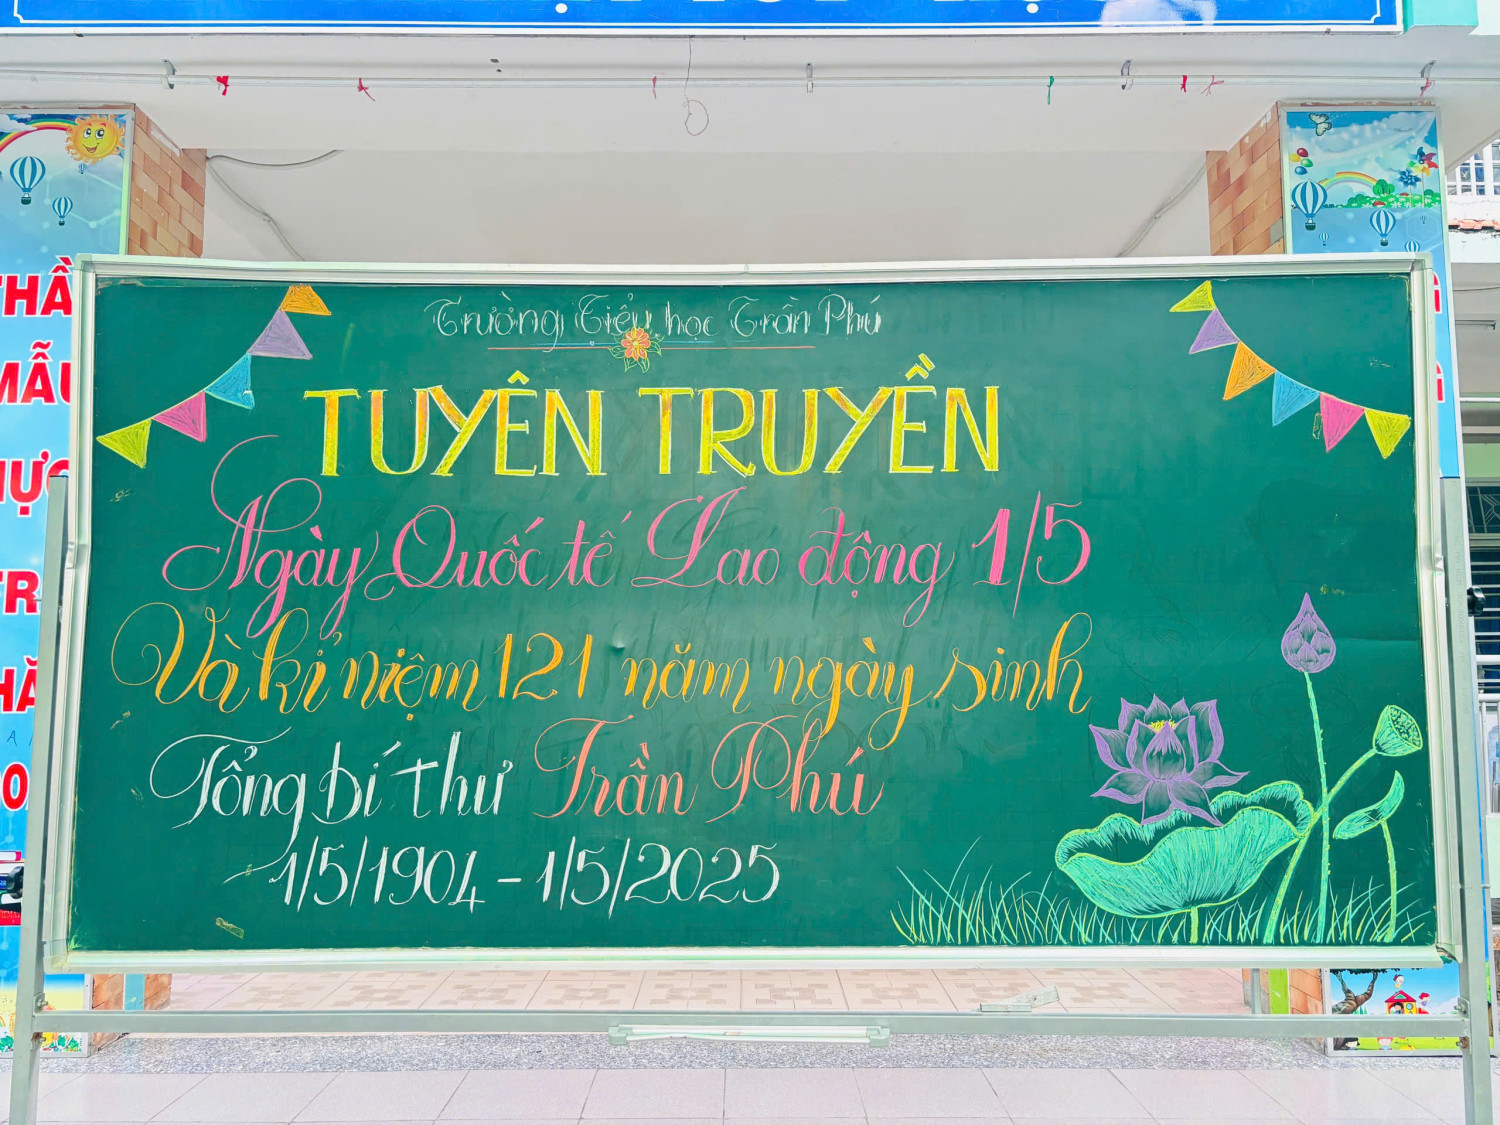 Trường Tiểu học Trần Phú
TUYÊN TRUYỀN
Ngày Quốc tế Lao động 1/5
Và kỉ niệm 121 năm ngày sinh
Tổng bí thư Trần Phú
1/5/1904 - 1/5/2025